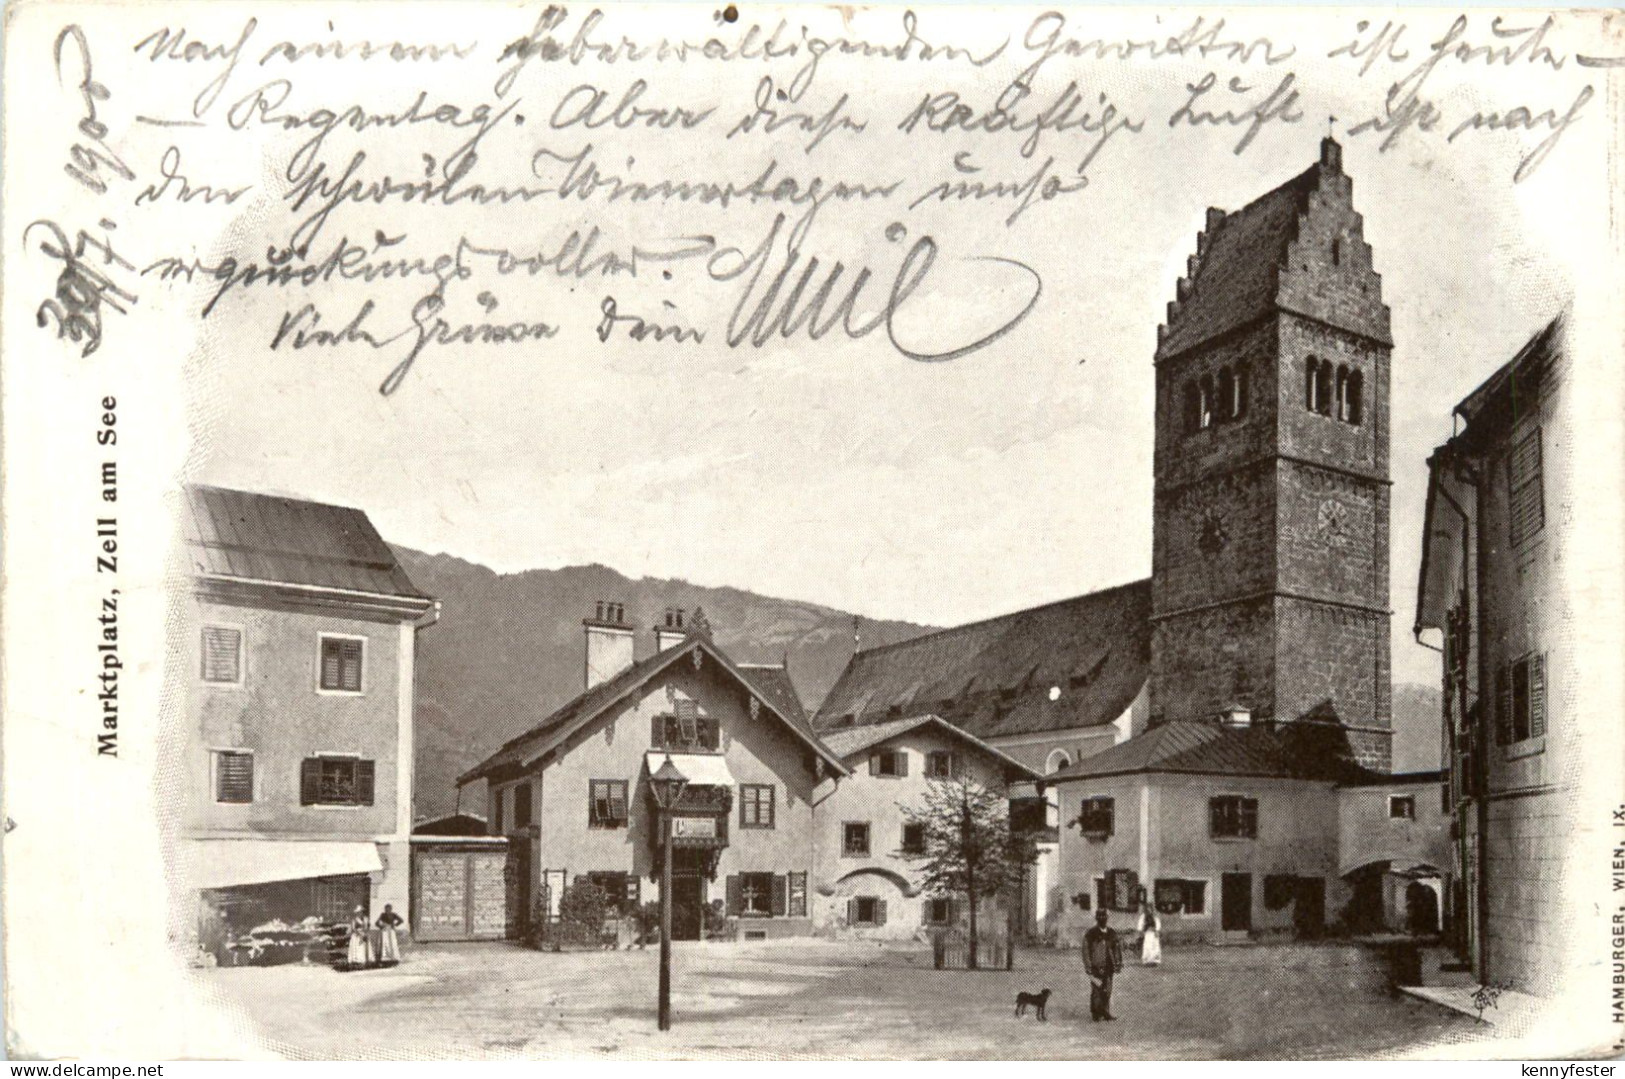 Nach einem überwältigenden Gewitter ist heute –
– Regentag. Aber diese kräftige Luft ist nach
den schwülen Wienertagen umso
erquickungsvoller.
Viele Grüsse Dein Emil
30/7. 1900
Marktplatz, Zell am See
HAMBURGER, WIEN, IX.
delcampe.net
kennyfester